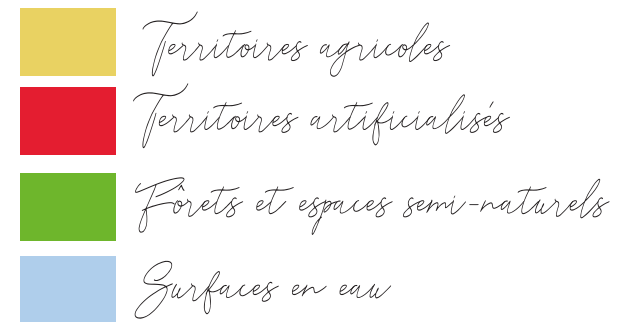 Territoires agricoles
Territoires artificialisés
Fôrets et espaces semi-naturels
Surfaces en eau